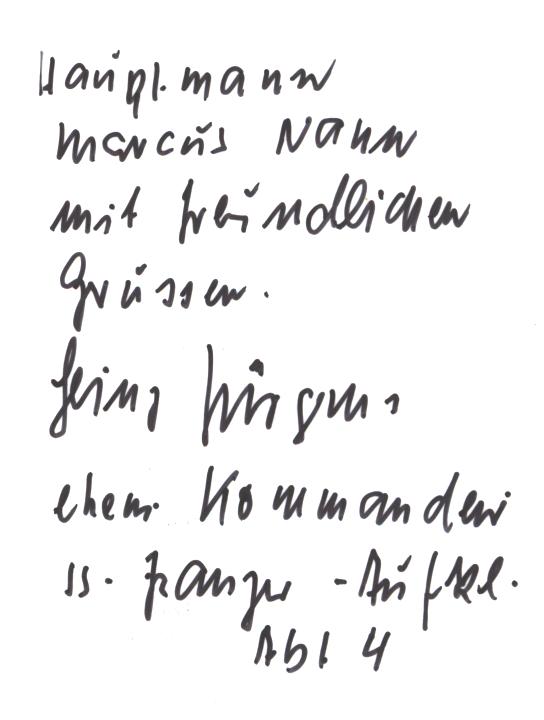 Hauptmann
Marcus Nann
mit freundlichen
Grüssen.
Heinz Jürgens
ehem. Kommandeur
SS-Panzer-Aufkl.
Abt 4